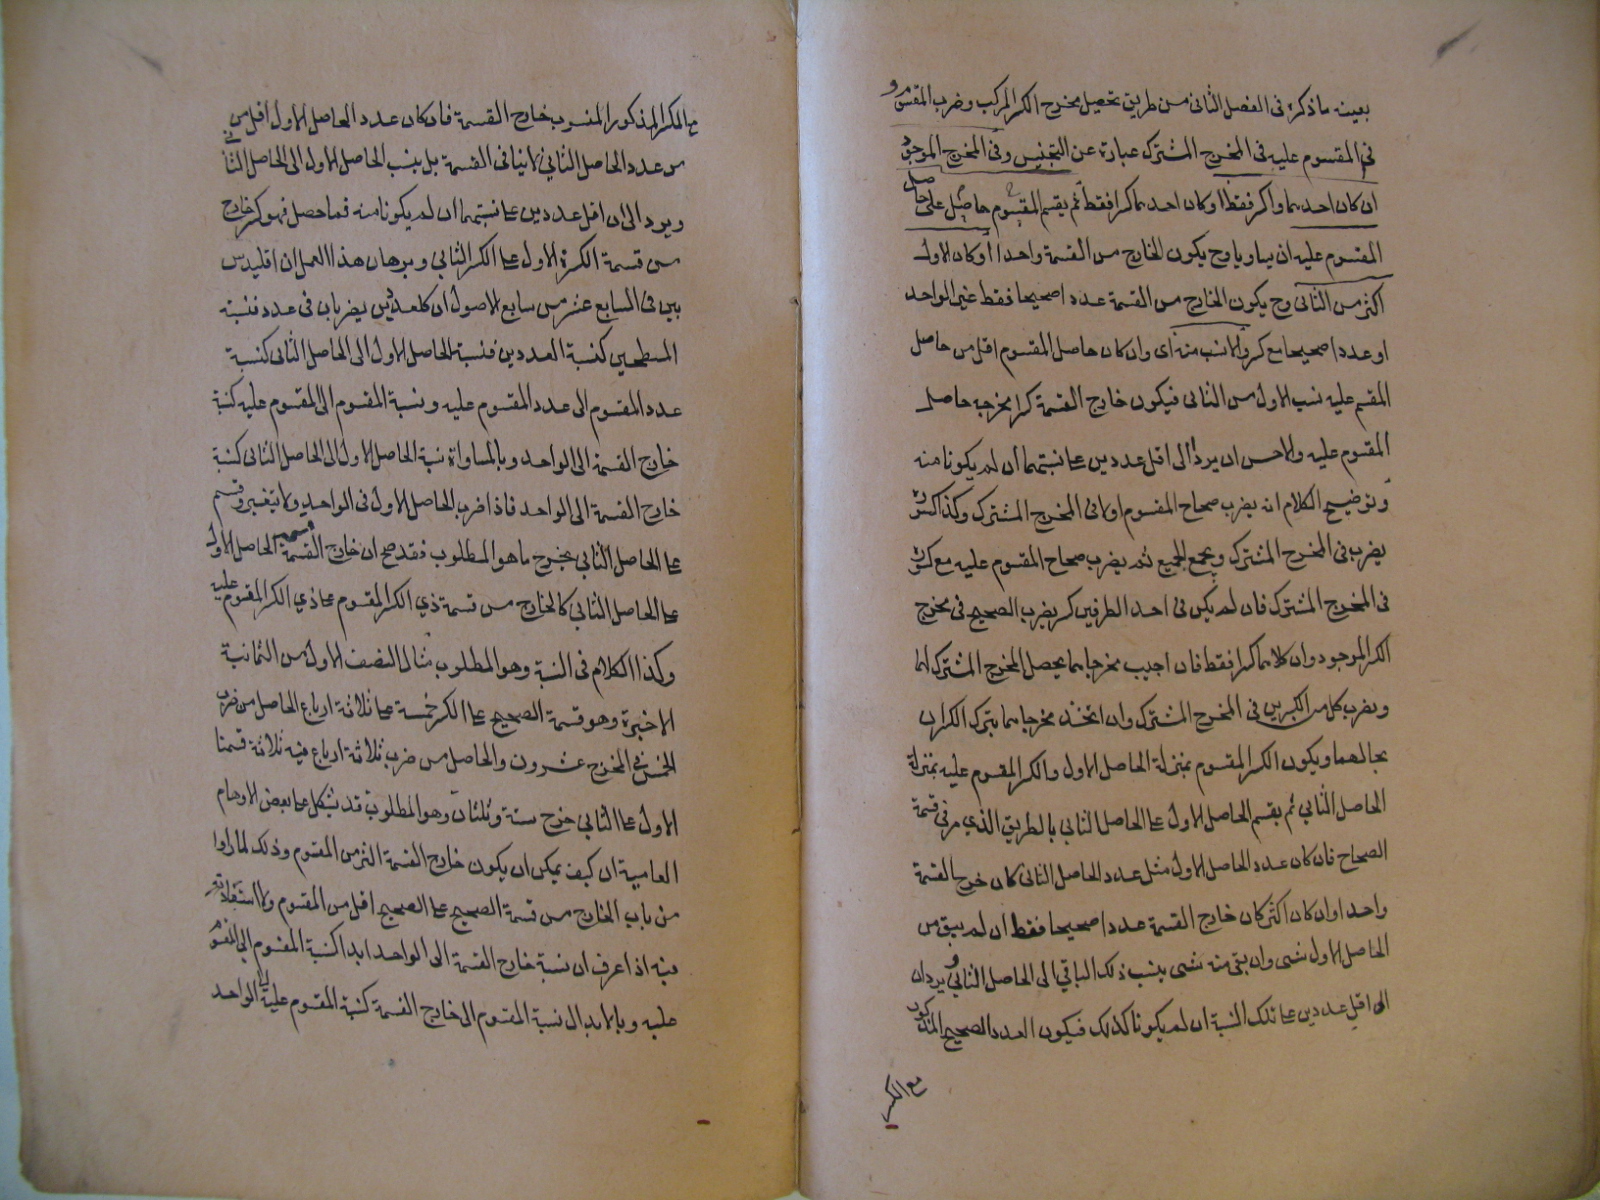 بعينه ما ذكره فى الفصل الثانى من طريق تحصيل مخرج الكسر المركب وضرب المقسوم و
فى المقسوم عليه فى المخرج المشترك عبارة عن التجنيس وفى المخرج الموجود
ان كان احدهما ذا كسر فقط او كان احدهما كسرا فقط ثم يقسم المقسوم حاصل على حاصل
المقسوم عليه ان يساويا وح يكون الخارج من القسمة واحدا او كان الاول
اكثر من الثانى وح يكون الخارج من القسمة عددا صحيحا فقط غير الواحد
او عددا صحيحا مع كسر والا نسب منه اى وان كان حاصل المقسوم اقل من حاصل
المقسم عليه نسب الاول من الثانى فيكون خارج القسمة كسرا مخرجه حاصل
المقسوم عليه والاحسن ان يرد الى اقل عددين على نسبتهما ان لم يكونا منه
وتوضيح الكلام انه يضرب صحاح المقسوم اولا فى المخرج المشترك وكذا كسوره
يضرب فى المخرج المشترك ويجمع الجميع ثم يضرب صحاح المقسوم عليه مع كسوره
فى المخرج المشترك فان لم يكن فى احد الطرفين كسر يضرب الصحيح فى مخرج
الكسر الموجود وان كلاهما كسرا فقط فان اجيب مخرجاهما يحصل المخرج المشترك لهما
ويضرب كل من الكسرين فى المخرج المشترك وان اتخذ مخرجاهما يترك الكسران
بحالهما ويكون الكسر المقسوم بمنزلة الحاصل الاول والكسر المقسوم عليه بمنزلة
الحاصل الثانى ثم يقسم الحاصل الاول على الحاصل الثانى بالطريق الذي مر فى قسمة
الصحاح فان كان عدد الحاصل الاول مثل عدد الحاصل الثانى كان خرج القسمة
واحدا وان كان اكثر كان خارج القسمة عددا صحيحا فقط ان لم يبق من
الحاصل الاول شئى وان بقى منه شئى ينسب ذلك الباقي الى الحاصل الثاني ويردان
الى اقل عددين على تلك النسبة ان لم يكونا كذلك فيكون العدد الصحيح المذكور
مع الكسر
مع الكسر المذكور المنسوب خارج القسمة فان كان عدد الحاصل الاول اقل من
من عدد الحاصل الثاني لا يتاتى القسمة بل ينسب الحاصل الاول الى الحاصل الثانى
ويرد الى ان اقل عددين على نسبتهما ان لم يكونا منه فما حصل فهو كسر خارج
من قسمة الكسر الاول على الكسر الثاني وبرهان هذا العمل ان اقليدس
بين فى السابع عشر من سابع الاصول ان كل عددين يضربان فى عدد فنسبة
المسطحين كنسبة العددين فنسبة الحاصل الاول الى الحاصل الثانى كنسبة
عدد المقسوم الى عدد المقسوم عليه ونسبة المقسوم الى المقسوم عليه كنسبة
خارج القسمة الى الواحد وبالمساواة نسبة الحاصل الاول الى الحاصل الثانى كنسبة
خارج القسمة الى الواحد فاذا ضرب الحاصل الاول فى الواحد ولا يتغير وقسم
على الحاصل الثاني يخرج ما هو المطلوب فقد صح ان خارج القسمة الحاصل الاول
على الحاصل الثاني كالخارج من قسمة ذي الكسر المقسوم على ذي الكسر المقسوم عليه
وكذا الكلام فى النسبة وهو المطلوب مثال النصف الاول من الثمانية
الاخيرة وهو قسمة الصحيح على الكسر خمسة على ثلاثة ارباع الحاصل من ضرب
الخمس فى المخرج عشرون والحاصل من ضرب ثلاثة ارباع فيه ثلاثة قسمنا
الاول على الثاني خرج ستة وثلثان وهو المطلوب قد يشكل على بعض الاوهام
العامية ان كيف يمكن ان يكون خارج القسمة اكثر من المقسوم وذلك لما راوا
من باب الخارج من قسمة الصحيح على الصحيح اقل من المقسوم ولا استبعاد
فيه اذا عرف ان نسبة خارج القسمة الى الواحد ابدا كنسبة المقسوم الى المقسوم
عليه وبالابدال نسبة المقسوم الى خارج القسمة كنسبة المقسوم عليه الى الواحد